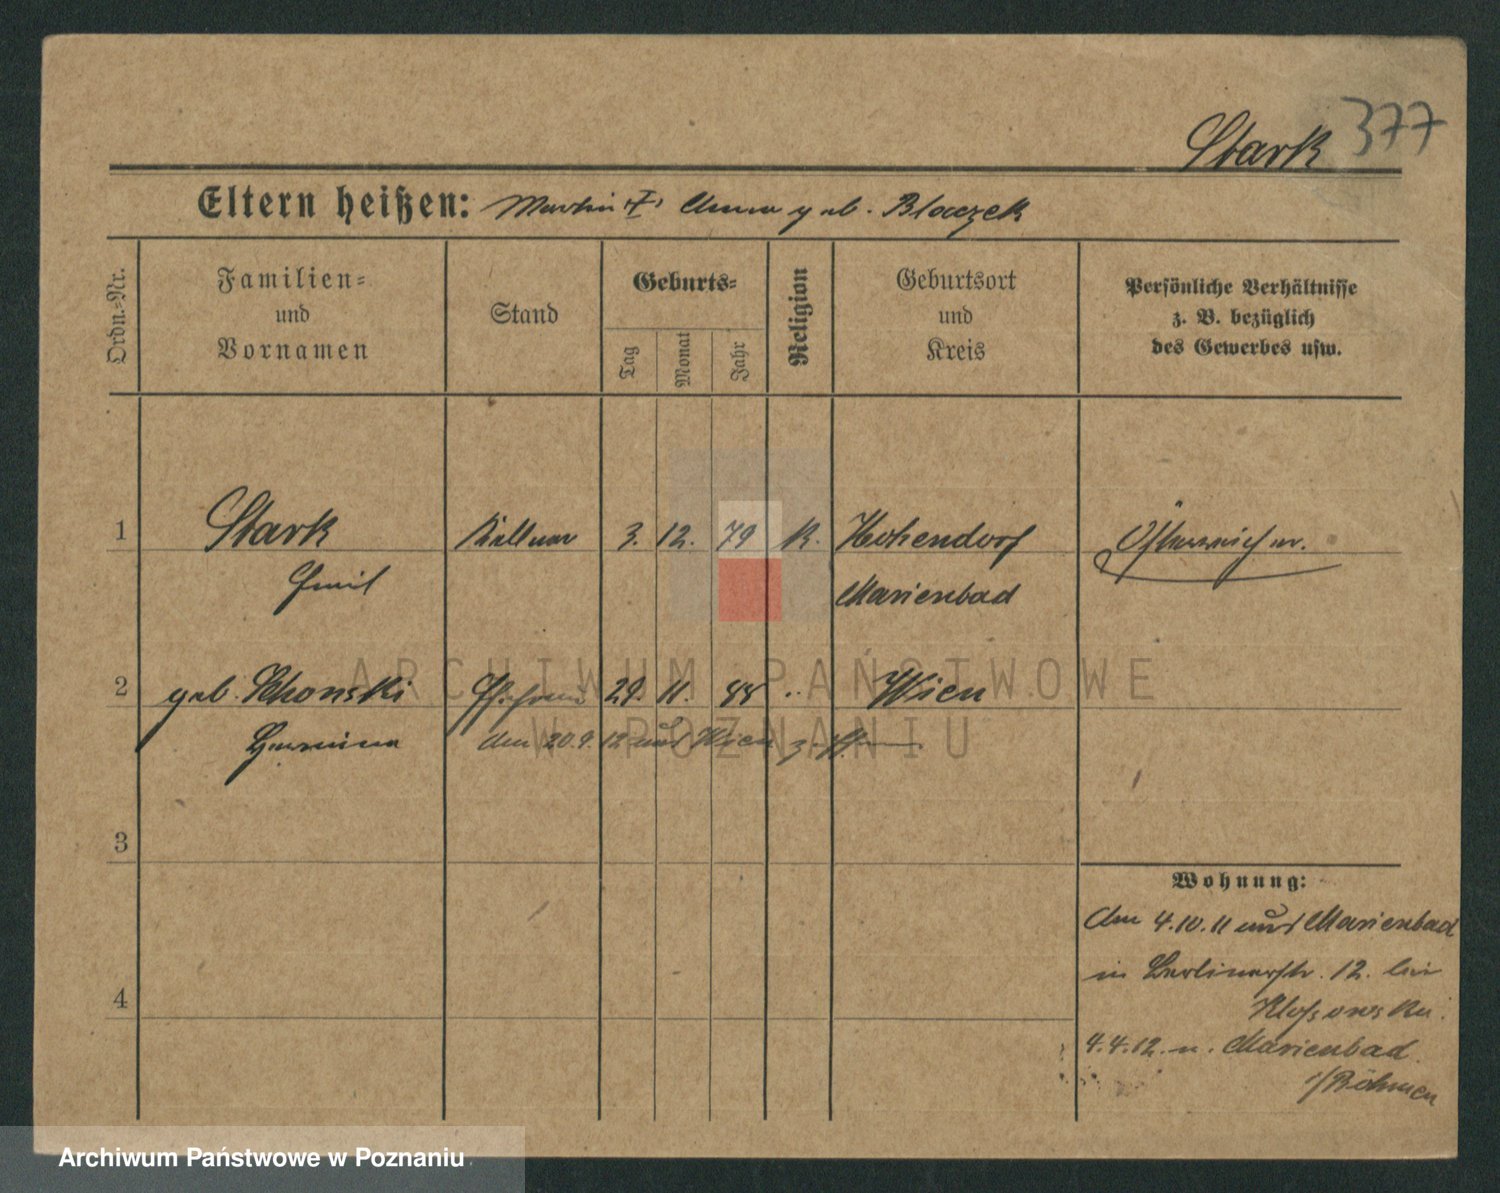 Stark 377
Eltern heißen: Martin "I" Anna geb. Blaczek
Ordn.-Nr.
Familien- und Vornamen
Stand
Geburts-
Tag
Monat
Jahr
Religion
Geburtsort und Kreis
Persönliche Verhältnisse
z. B. bezüglich
des Gewerbes usw.
1 Stark Kellner 3. 12. 79 K. Hohendorf Österreicher.
Emil Marienbad
2 geb. Schonski Ehefrau 29. 11. 88 " Wien
Hermine den 20.9.12 aus Wien
3
4
Wohnung:
Am 4.10.11 aus Marienbad
in Berlinerstr. 12. bei
Klossowski.
4.4.12. n. Marienbad
i/Böhmen
ARCHIWUM PAŃSTWOWE
W POZNANIU
Archiwum Państwowe w Poznaniu